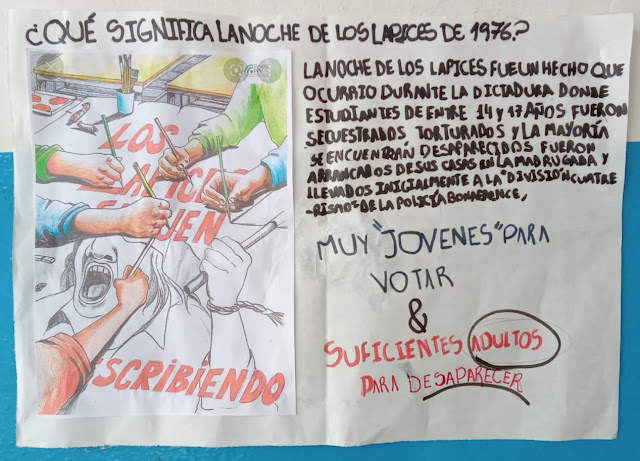 ¿QUÉ SIGNIFICA LA NOCHE DE LOS LAPICES DE 1976?
LA NOCHE DE LOS LAPICES FUE UN HECHO QUE
OCURRIO DURANTE LA DICTADURA DONDE
ESTUDIANTES DE ENTRE 14 y 17 AÑOS FUERON
SECUESTRADOS TORTURADOS Y LA MAYORÍA
SE ENCUENTRAN DESAPARECIDOS FUERON
ARRANCADOS DE SUS CASAS EN LA MADRUGADA Y
LLEVADOS INICIALMENTE A LA "DIVISIÓN CUATRE
-RISMO" DE LA POLICÍA BONAERENCE,
MUY "JOVENES" PARA
VOTAR
&
SUFICIENTES ADULTOS
PARA DESAPARECER
LOS
LÁPICES
SIGUEN
ESCRIBIENDO